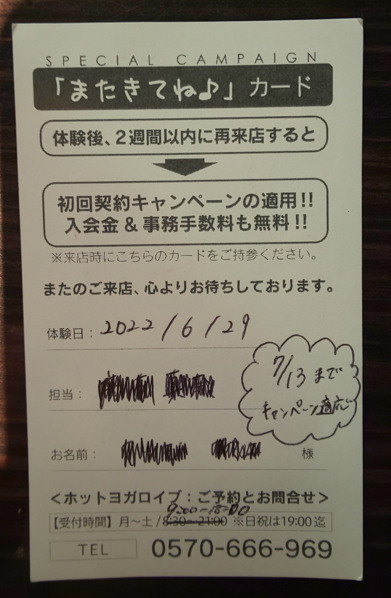 SPECIAL CAMPAIGN
「またきてね♪」カード
体験後、2週間以内に再来店すると
初回契約キャンペーンの適用!!
入会金 & 事務手数料も無料!!
※来店時にこちらのカードをご持参ください。
またのご来店、心よりお待ちしております。
体験日: 2022/6/29
7/13 まで
キャンペーン適応
担当:
お名前: 様
<ホットヨガロイブ:ご予約とお問合せ>
9:00-18:00
【受付時間】月~土/8:30~21:00 ※日祝は19:00迄
TEL 0570-666-969